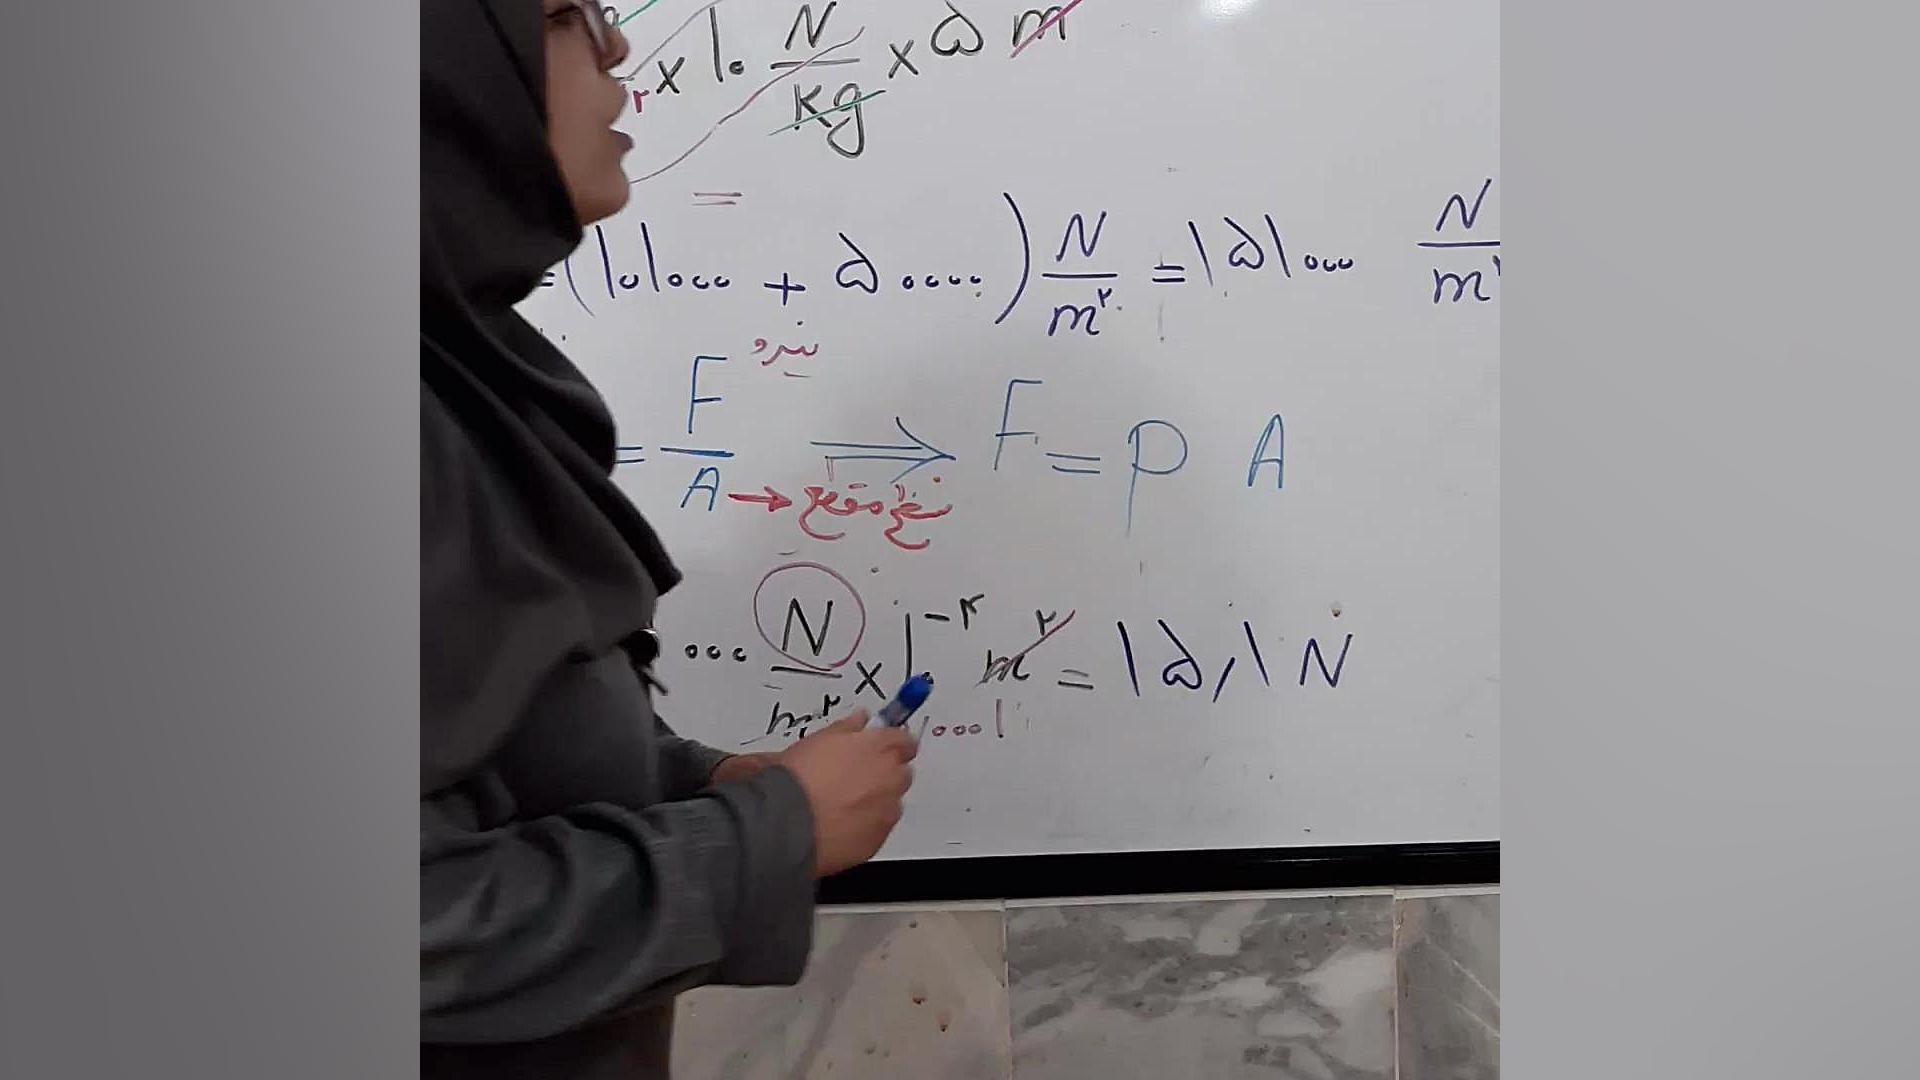 × ۱۰ N/kg × ۵ m
=
= (۱۰۱۰۰۰ + ۵۰۰۰۰) N/m² = ۱۵۱۰۰۰ N/m²
نیرو
= F/A ⇒ F = P A
→ سطح مقطع
۰۰۰ N/m² × ۱۰⁻⁴ m² = ۱۵٫۱ N
۰۰۰۱